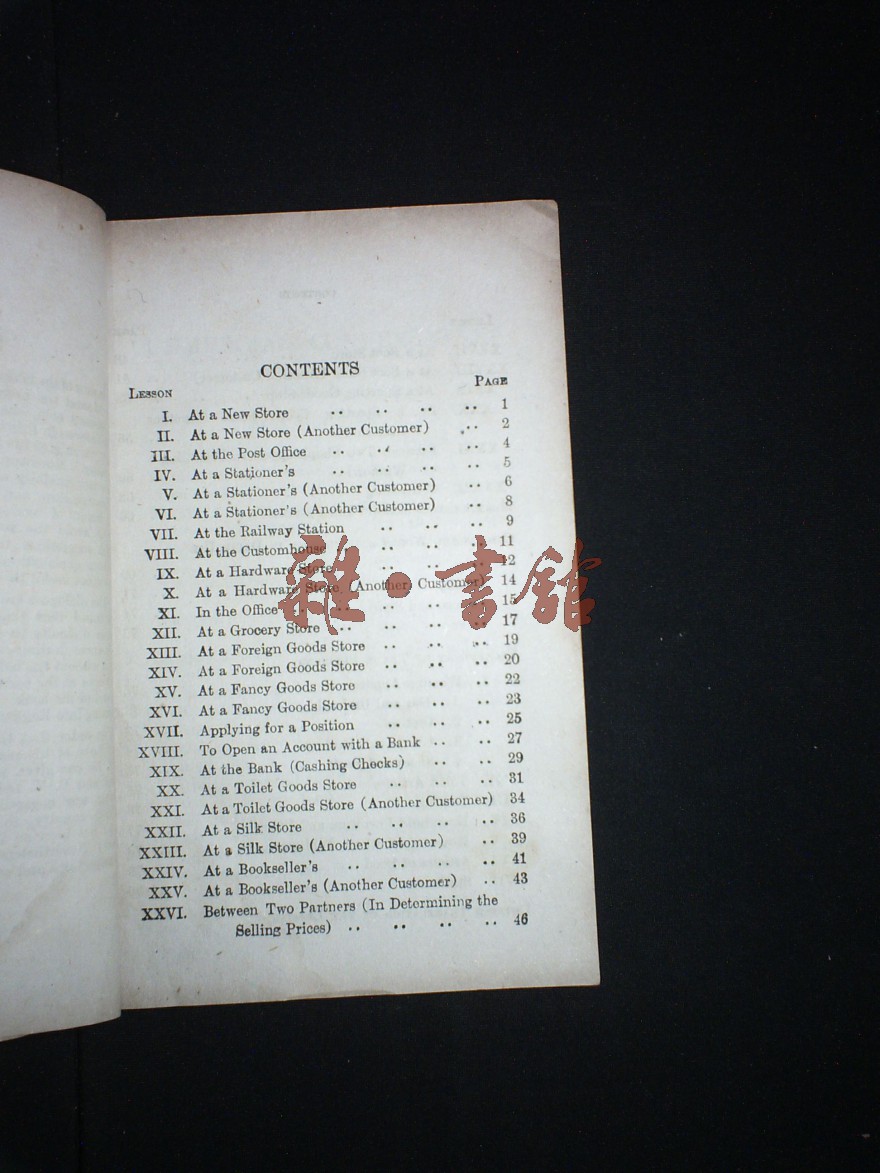 CONTENTS
LESSON PAGE
I. At a New Store .. .. .. .. 1
II. At a New Store (Another Customer) .. 2
III. At the Post Office .. .. .. .. 4
IV. At a Stationer's .. .. .. .. 5
V. At a Stationer's (Another Customer) .. 6
VI. At a Stationer's (Another Customer) .. 8
VII. At the Railway Station .. .. .. 9
VIII. At the Customhouse .. .. .. 11
IX. At a Hardware Store .. .. .. 12
X. At a Hardware Store (Another Customer) 14
XI. In the Office .. .. .. .. 15
XII. At a Grocery Store .. .. .. .. 17
XIII. At a Foreign Goods Store .. .. .. 19
XIV. At a Foreign Goods Store .. .. .. 20
XV. At a Fancy Goods Store .. .. .. 22
XVI. At a Fancy Goods Store .. .. .. 23
XVII. Applying for a Position .. .. .. 25
XVIII. To Open an Account with a Bank .. .. 27
XIX. At the Bank (Cashing Checks) .. .. 29
XX. At a Toilet Goods Store .. .. .. 31
XXI. At a Toilet Goods Store (Another Customer) 34
XXII. At a Silk Store .. .. .. .. 36
XXIII. At a Silk Store (Another Customer) .. 39
XXIV. At a Bookseller's .. .. .. .. 41
XXV. At a Bookseller's (Another Customer) .. 43
XXVI. Between Two Partners (In Determining the
Selling Prices) .. .. .. .. 46
雜·書館